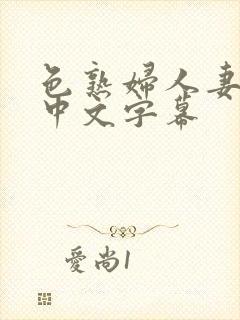 色熟婦人妻
中文字幕
愛尚1